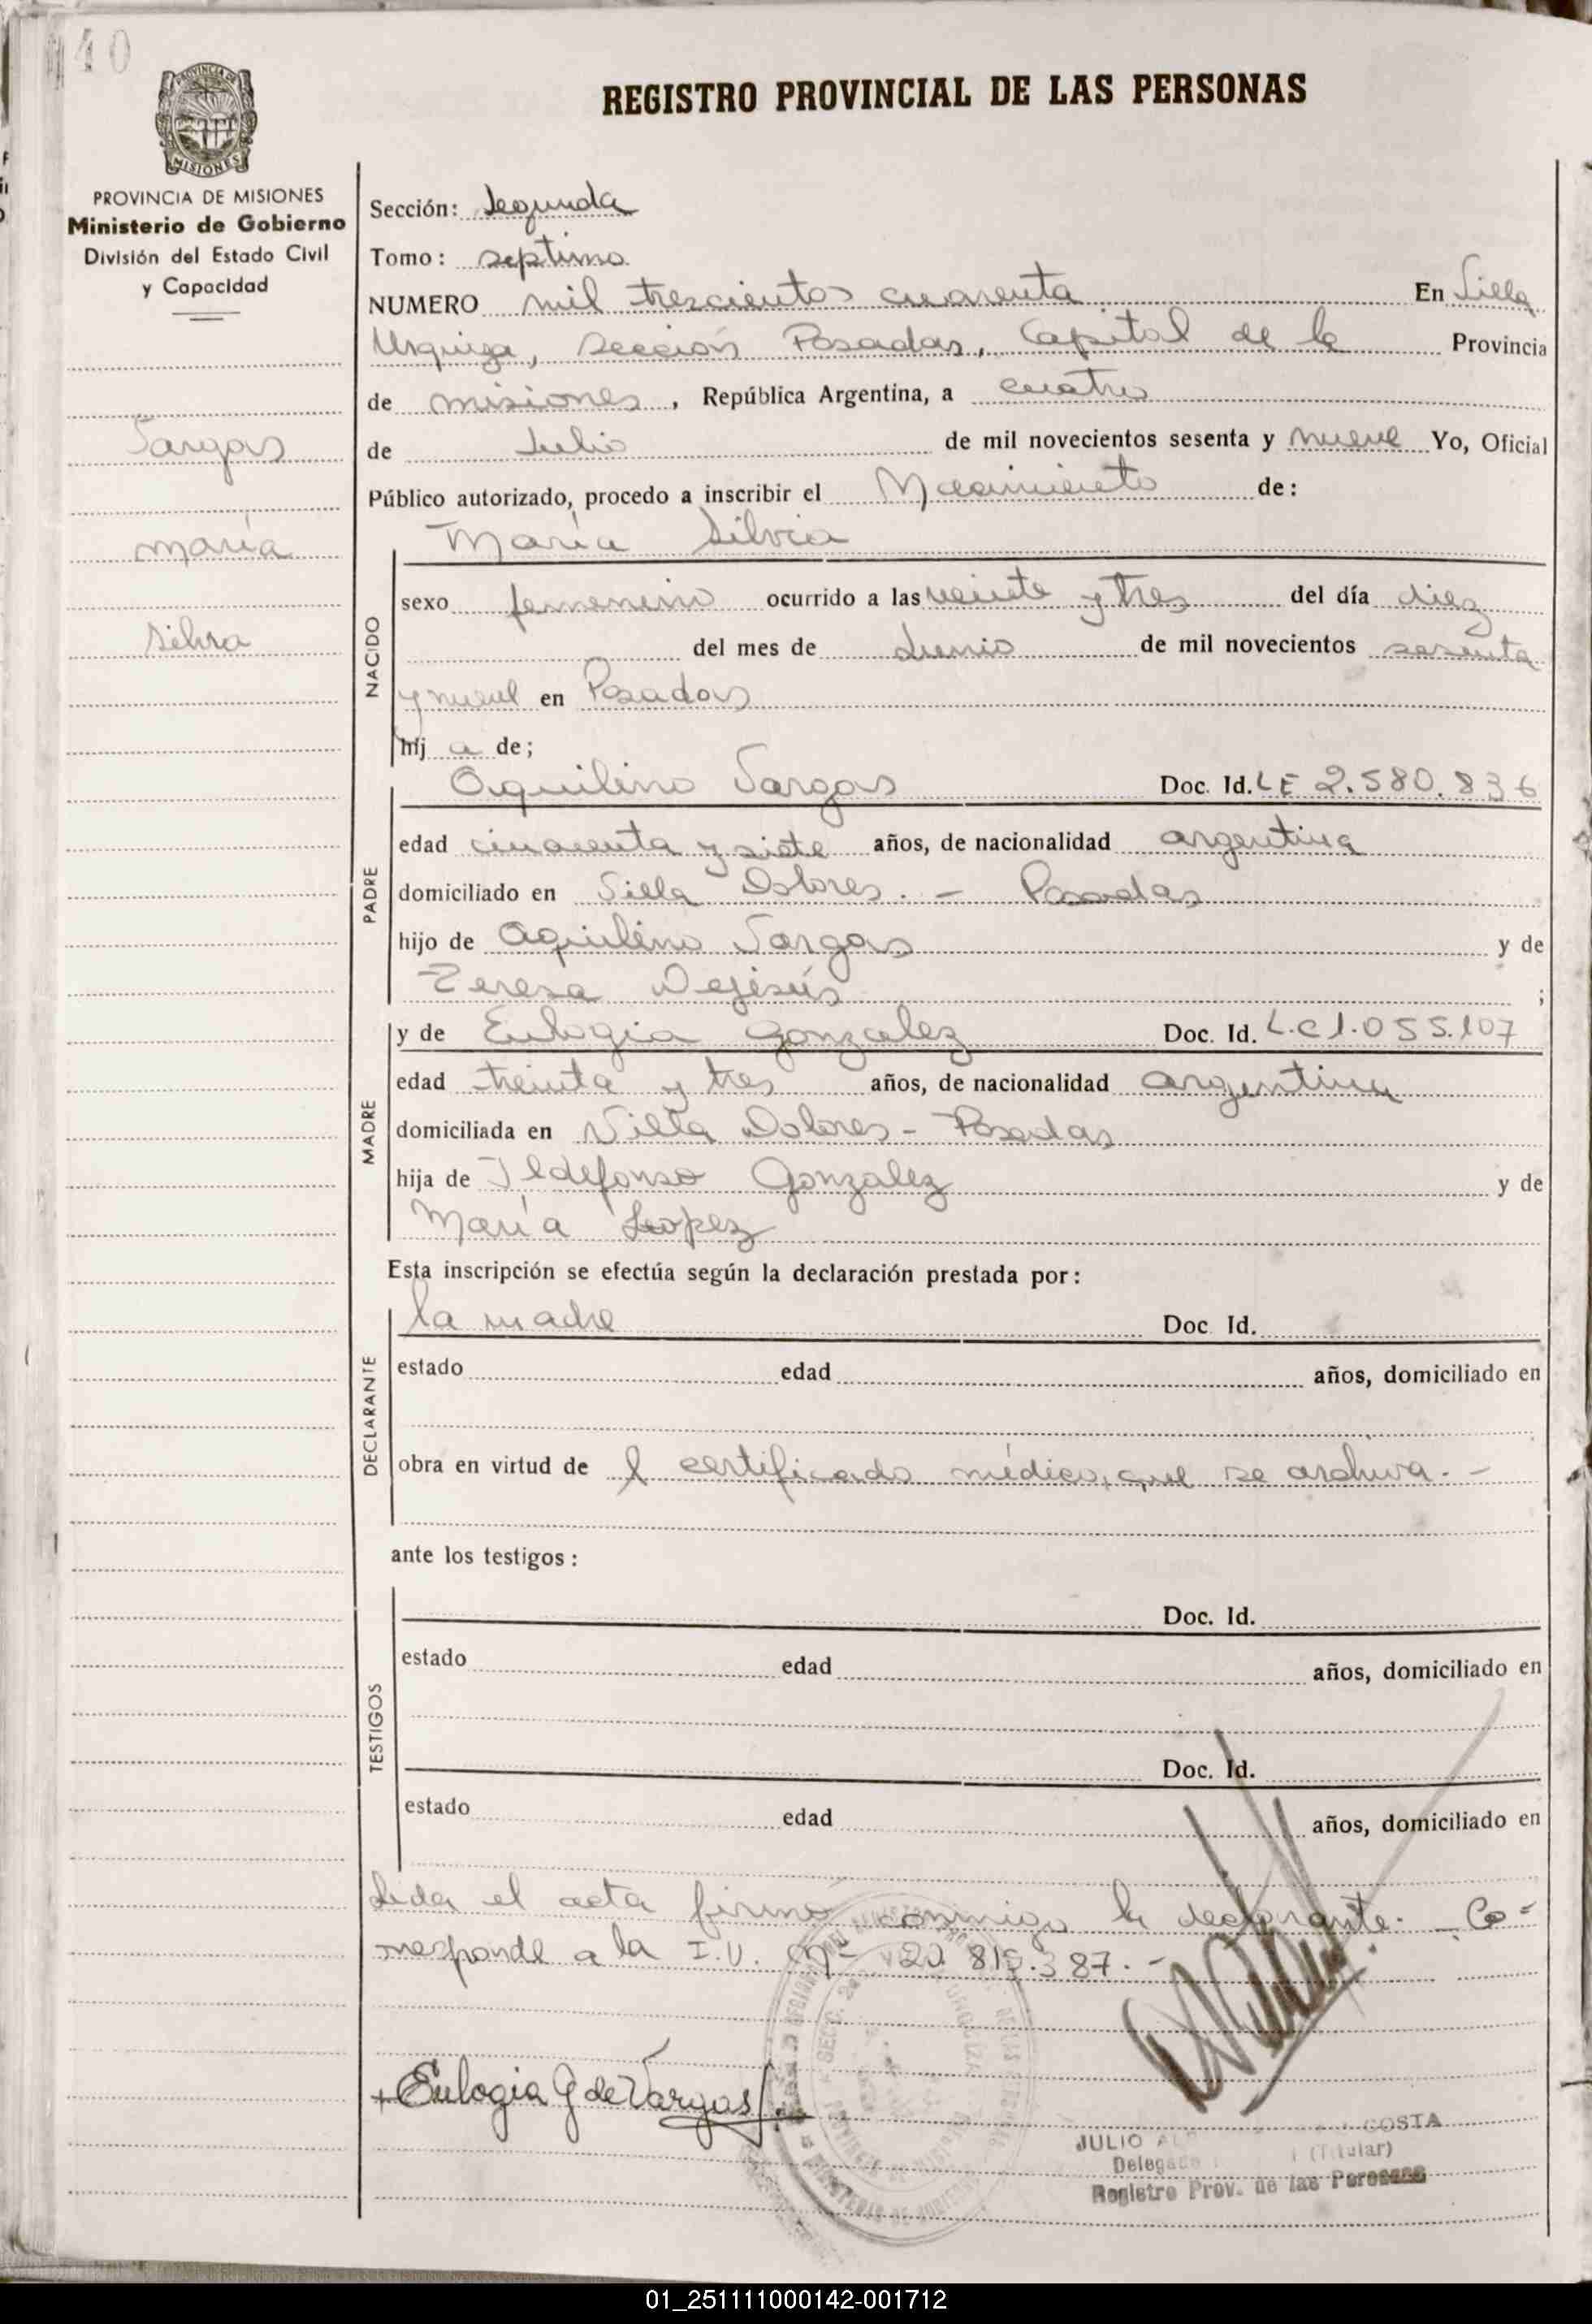 40
REGISTRO PROVINCIAL DE LAS PERSONAS
PROVINCIA DE MISIONES
Ministerio de Gobierno
División del Estado Civil
y Capacidad
Vargas
María
Silvia
Sección: Segunda
Tomo: septimo
NUMERO mil trescientos cuarenta En Villa
Urquiza, Sección Posadas, Capital de la Provincia
de misiones, República Argentina, a cuatro
de Julio de mil novecientos sesenta y nueve Yo, Oficial
Público autorizado, procedo a inscribir el Nacimiento de:
María Silvia
NACIDO
sexo femenino ocurrido a las veinte y tres del día diez
del mes de Junio de mil novecientos sesenta
y nueve en Posadas
hij a de;
Aquilino Vargas Doc. Id. LE 2.580.836
PADRE
edad cincuenta y siete años, de nacionalidad argentina
domiciliado en Villa Dolores. - Posadas
hijo de Aquilino Vargas y de
Teresa Dejesús ;
y de Eulogia Gonzalez Doc. Id. L.C 1.055.107
MADRE
edad treinta y tres años, de nacionalidad argentina
domiciliada en Villa Dolores - Posadas
hija de Ildefonso Gonzalez y de
María Lopez
Esta inscripción se efectúa según la declaración prestada por:
la madre Doc. Id.
DECLARANTE
estado edad años, domiciliado en
obra en virtud de l certificado médico, que se archiva. -
ante los testigos:
Doc. Id.
TESTIGOS
estado edad años, domiciliado en
Doc. Id.
estado edad años, domiciliado en
Leída el acta firmó conmigo la declarante. - Co=
rresponde a la I.U. Nº 20.815.387. -
Eulogia G de Vargas
JULIO COSTA
Delegado (Titular)
Registro Prov. de las Personas
01_251111000142-001712